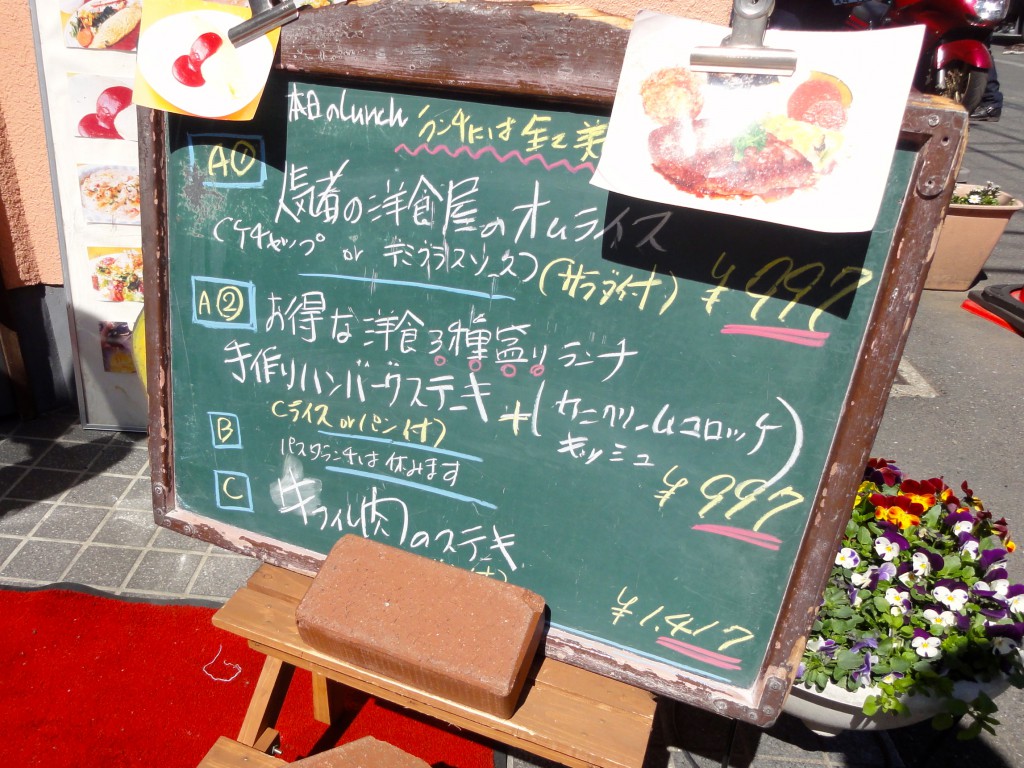 本日のLunch ランチには全て美
A①
長者の洋食屋のオムライス
(ケチャップ or デミグラスソース)
(サラダ付) ¥997
A② お得な洋食3種盛りランチ
手作りハンバーグステーキ + (カニクリームコロッケ
キッシュ
(ライス or パン付)
¥997
B パスタランチは休みます
C 牛フィレ肉のステーキ
¥1.417